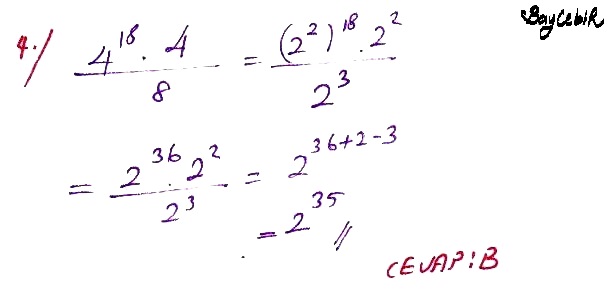 BaycebiR
4.) 4^18 . 4 / 8 = (2^2)^18 . 2^2 / 2^3
= 2^36 . 2^2 / 2^3 = 2^36+2-3
= 2^35 //
CEVAP:B